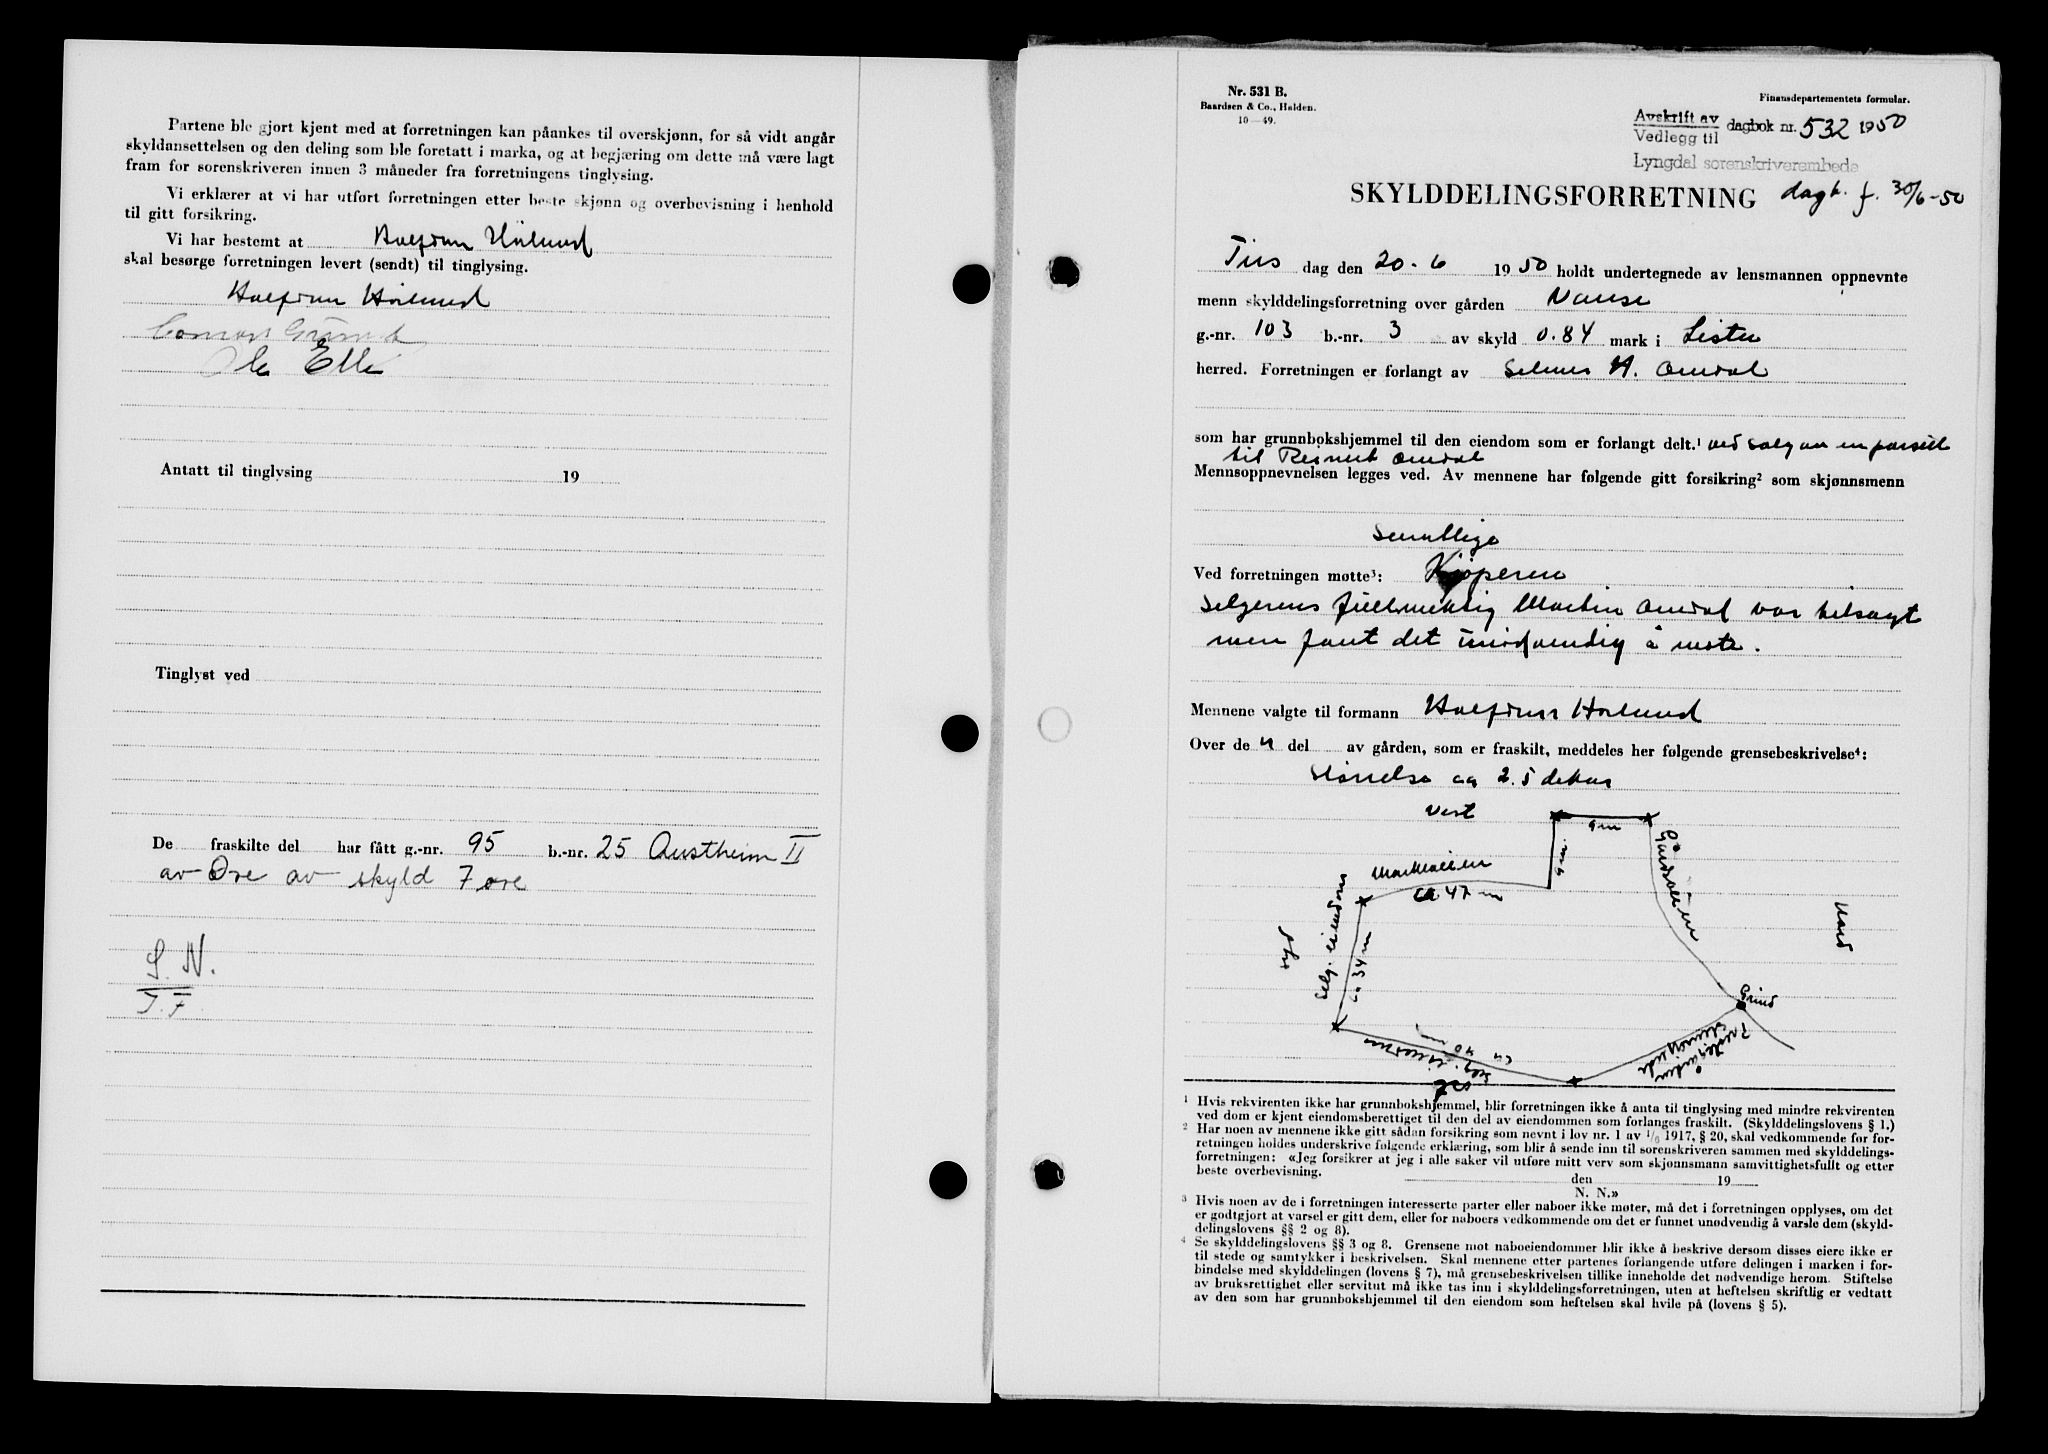 Partene ble gjort kjent med at forretningen kan påankes til overskjønn, for så vidt angår
skyldansettelsen og den deling som ble foretatt i marka, og at begjæring om dette må være lagt
fram for sorenskriveren innen 3 måneder fra forretningens tinglysing.
Vi erklærer at vi har utført forretningen etter beste skjønn og overbevisning i henhold
til gitt forsikring.
Vi har bestemt at Halfdan Hörlund
skal besørge forretningen levert (sendt) til tinglysing.
Halfdan Hörlund
Ole Elle
Antatt til tinglysing 19
Tinglyst ved
De fraskilte del har fått g.-nr. 95 b.-nr. 25 Austheim II
av Øre av skyld 7 øre
S. N.
T. F.
Nr. 531 B.
Baardsen & Co., Halden.
10—49.
Finansdepartementets formular.
Avskrift av
Vedlegg til dagbok nr. 532 1950
Lyngdal sorenskriverembede
SKYLDDELINGSFORRETNING dagb. f. 30/6-50
Tirs dag den 20-6 1950 holdt undertegnede av lensmannen oppnevnte
menn skylddelingsforretning over gården Vanse
g.-nr. 103 b.-nr. 3 av skyld 0.84 mark i Lista
herred. Forretningen er forlangt av Selmer H. Omdal
som har grunnbokshjemmel til den eiendom som er forlangt delt.¹ ved salg av en parsell
til Omdal
Mennsoppnevnelsen legges ved. Av mennene har følgende gitt forsikring² som skjønnsmenn
Samtlige
Ved forretningen møtte³: Kjøperen
Selgerens fullmektig Martin Omdal var tilsagt
men fant det unødvendig å møte.
Mennene valgte til formann Halfdan Hörlund
Over de n del av gården, som er fraskilt, meddeles her følgende grensebeskrivelse⁴:
Størrelse ca 2.5 dekar
Vest
9 m
9 m
Gårdsveien
Markveien
ca 47 m
Nord
syd
Selg. eiendom
ca 34 m
Grind
ca 40 m
Selg. eiendom
øst
¹ Hvis rekvirenten ikke har grunnbokshjemmel, blir forretningen ikke å anta til tinglysing med mindre rekvirenten
ved dom er kjent eiendomsberettiget til den del av eiendommen som forlanges fraskilt. (Skylddelingslovens § 1.)
² Har noen av mennene ikke gitt sådan forsikring som nevnt i lov nr. 1 av 1/6 1917, § 20, skal vedkommende før for-
retningen holdes underskrive følgende erklæring, som blir å sende inn til sorenskriveren sammen med skylddelings-
forretningen: «Jeg forsikrer at jeg i alle saker vil utføre mitt verv som skjønnsmann samvittighetsfullt og etter
beste overbevisning.
den 19
N. N.»
³ Hvis noen av de i forretningen interesserte parter eller naboer ikke møter, må det i forretningen opplyses, om det
er godtgjort at varsel er gitt dem, eller for naboers vedkommende om det er funnet unødvendig å varsle dem (skyld-
delingslovens §§ 2 og 8).
⁴ Se skylddelingslovens §§ 3 og 8. Grensene mot naboeiendommer blir ikke å beskrive dersom disses eiere ikke er
til stede og samtykker i beskrivelsen. Skal mennene etter partenes forlangende utføre delingen i marken i for-
bindelse med skylddelingen (lovens § 7), må grensebeskrivelsen tillike inneholde det nødvendige herom. Stiftelse
av bruksrettighet eller servitut må ikke tas inn i skylddelingsforretningen, uten at heftelsen skriftlig er vedtatt
av den som har grunnbokshjemmel til den eiendom som heftelsen skal hvile på (lovens § 5).